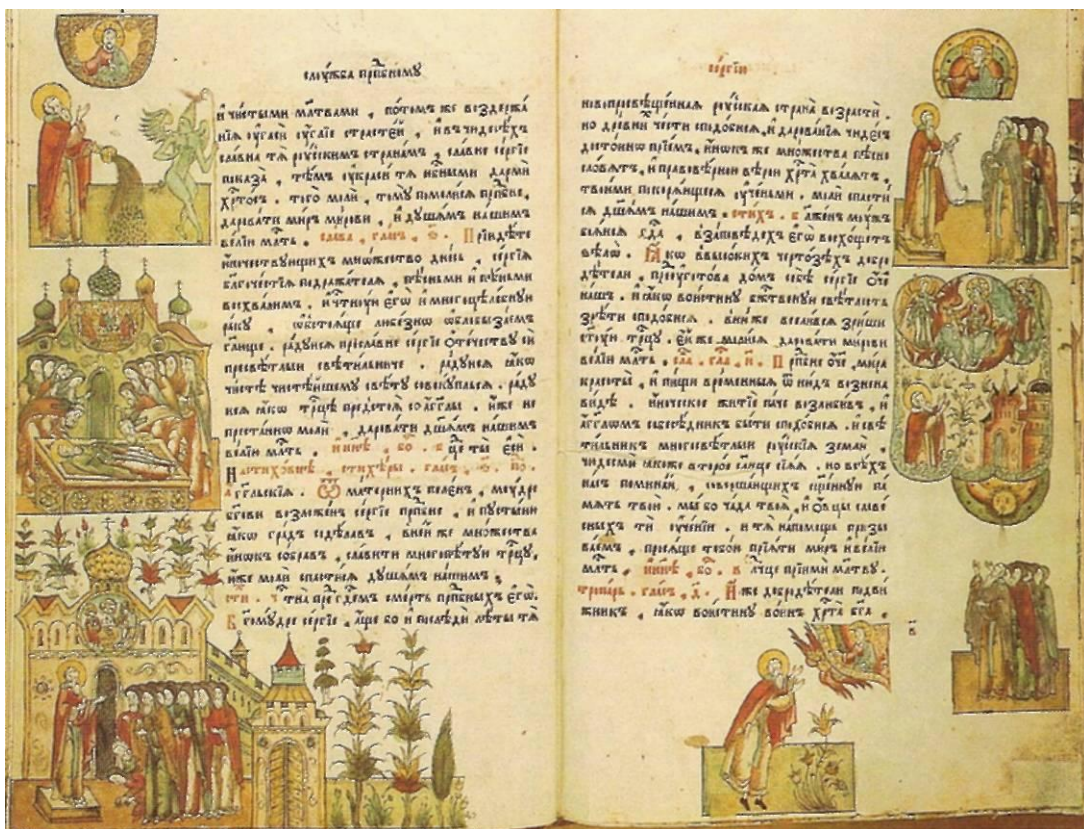 слꙋжба прпⷣбномꙋ
и҆ чи́стыми мл҃твами , пото́мъ же воздержа́
нїѧ ѹ҆гаси̏ ѹ҆́гліе страсте́й , и҆ въ чꙋдесѣ́хъ
сла́вна тѧ̀ рѹ́сскимъ страна́мъ , сла́вне се́ргїе
показа̀ , тѣ́мъ ѹ҆краси́ тѧ нб҃ными да́рмѝ
хрⷭ҇то́съ . того̀ молѝ , томꙋ̀ помоли́сѧ прпⷣбне ,
дарова́ти ми́ръ ми́рови , и҆ дꙋша́мъ на́шимъ
ве́лїю млⷭ҇ть . сла́ва , гла́съ , ѳ҃ . Прїидѣ́те
и҆́ночествꙋющихъ мно́жество дне́сь , се́ргїѧ
благоче́стїѧ подража́телѧ , пѣ́сньми и҆ пѣ́ньми
восхва́лимъ . и҆ чтꙋ́щи є҆го̀ и҆ многоцѣле́бнꙋю
ра́кꙋ , ѡ҆бстоѧ́ще любе́знѡ ѡ҆блобыза́емъ
гл҃юще . ра́дꙋйсѧ пресла́вне се́ргїе ѻ҆те́чествꙋ си̏
пресвѣ́тлый свѣти́льниче . ра́дꙋйсѧ ꙗ҆́кѡ
чи́стѣ чистѣ́йшемꙋ свѣ́тꙋ совокꙋпльсѧ . ра́дꙋ
йсѧ ꙗ҆́кѡ трⷪ҇цѣ предстоѧ̀ со а҆́гг҃лы . и҆́же не
преста́ннѡ молѝ , дарова́ти дш҃а́мъ на́шимъ
ве́лїю млⷭ҇ть . и҆ ны́нѣ , бо . Бц҃е ты̀ є҆сѝ .
На стихо́внѣ , стихѣ́ры . гла́съ , ѳ҃ . по .
а҆́гг҃льскїѧ . Ѿ ма́тернихъ пеле́нъ , мꙋ́дре
бг҃ови возложе́нъ се́ргїе прпⷣбне , и҆ пꙋсты́ню
ꙗ҆́кѡ гра́дъ содѣ́лавъ , в не́й же мно́жества
и҆́нокъ собра́въ , сла́вити многопѣ́тꙋю трⷪ҇цꙋ ,
и҆́же молѝ спасти́сѧ дꙋша́мъ на́шимъ ,
сти . Чтна̀ пред гдⷭ҇емъ сме́рть прпⷣбныхъ є҆гѡ̀ .
Бг҃омꙋ́дре се́ргїе , а҆́ще бо и҆ послѣди̏ лѣ́ты тѧ̀
се́ргїю
новопросвѣще́ннаѧ рѹ́сскаѧ страна̀ возрастѝ .
но дре́внꙋю че́сти сподо́бисѧ , и҆ дарова́нїѧ чꙋде́съ
досто́йнѡ прїе́мъ , и҆́нокъ же мно́жества пѣ́сно
сло́вѧтъ , и҆ правовѣ́рнїи вѣ́рою хрⷭ҇та̀ хва́лѧтъ ,
твои́ми покорѧ́ющесѧ ѹ҆че́ньми . молѝ спасти́
сѧ дш҃а́мъ на́шимъ . сти́хъ . Блаже́нъ мꙋ́жъ
боѧ́йсѧ гдⷭ҇а , в за́повѣдехъ є҆гѡ̀ восхо́щетъ
ѕѣлѡ̀ . Ꙗ҆́кѡ в высо́кихъ черто́зѣхъ добро
дѣ́тели , предꙋгото́ва до́мъ себѣ̀ се́ргїе ѻ҆́ч҃е
на́шъ . и҆ ꙗ҆́кѡ вои́стинꙋ бжⷭ҇твеннꙋю свѣ́тлость
зрѣ́ти сподо́бисѧ . в ню́же всели́всѧ зри́ши
ст҃ꙋ́ю трⷪ҇цꙋ . є҆́й же моли́сѧ дарова́ти ми́рови
ве́лїю млⷭ҇ть . сла́ . гла́ . и҃ . Прпⷣбне ѻ҆́ч҃е , ми́ра
красоты̀ , и҆ пи́щи вре́менныѧ ѿню́дъ возненави́
видѣ . и҆́ноческое житїѐ па́че возлюби́въ , и҆
а҆́гг҃ломъ собесѣ́дникъ бы́ти сподо́бисѧ . и҆ свѣ
ти́льникъ многосвѣ́тлый рѹ́сскїѧ землѝ ,
чꙋдесы̀ ꙗ҆́коже второ́е со́лнце сїѧ́ѧ . но всѣ́хъ
на́съ помина́й , соверша́ющихъ сщ҃е́ннꙋю па́
мѧть твою̀ . мы́ бо ча́да твоѧ̀ , и҆ ѻ҆́вцы слове́
сныхъ тѝ ѹ҆че́нїй . и҆ тѧ̀ на по́мощь призы
ва́емъ , просѧ́ще тобо́ю прїѧ́ти ми́ръ и҆ ве́лїю
млⷭ҇ть . и҆ ны́нѣ , бо . Влⷣчце прїимѝ мл҃твꙋ .
тропа́рь . гла́съ , д҃ . И҆́же добродѣ́тели подви́
жникъ , ꙗ҆́кѡ вои́стинꙋ во́инъ хрⷭ҇та̀ бг҃а ,
в҃